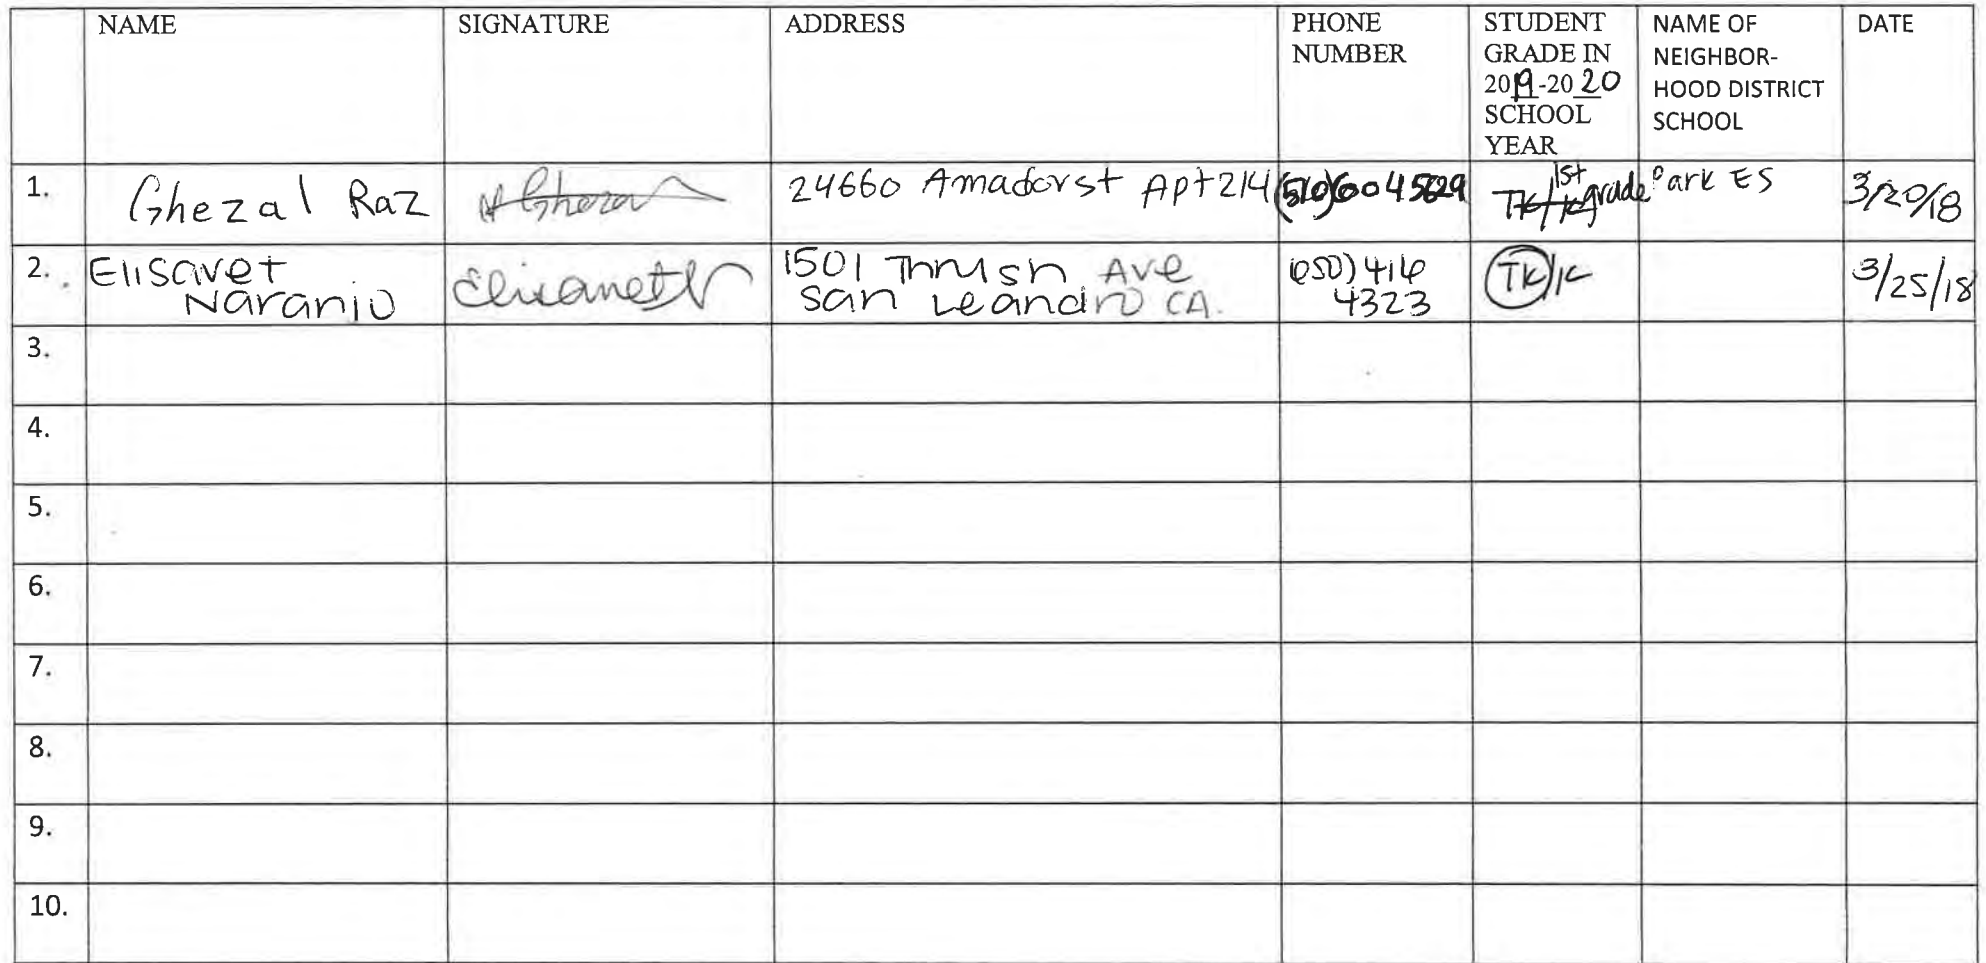 NAME SIGNATURE ADDRESS PHONE NUMBER STUDENT GRADE IN 2019-2020 SCHOOL YEAR NAME OF NEIGHBOR-HOOD DISTRICT SCHOOL DATE
1. Ghezal Raz 24660 Amador st Apt 214 (510)6045629 TK/K 1st grade Park ES 3/20/18
2. Elisavet Naranjo Elisavet N 1501 Thrush Ave San Leandro CA. (650) 416 4323 TK/K 3/25/18
3.
4.
5.
6.
7.
8.
9.
10.